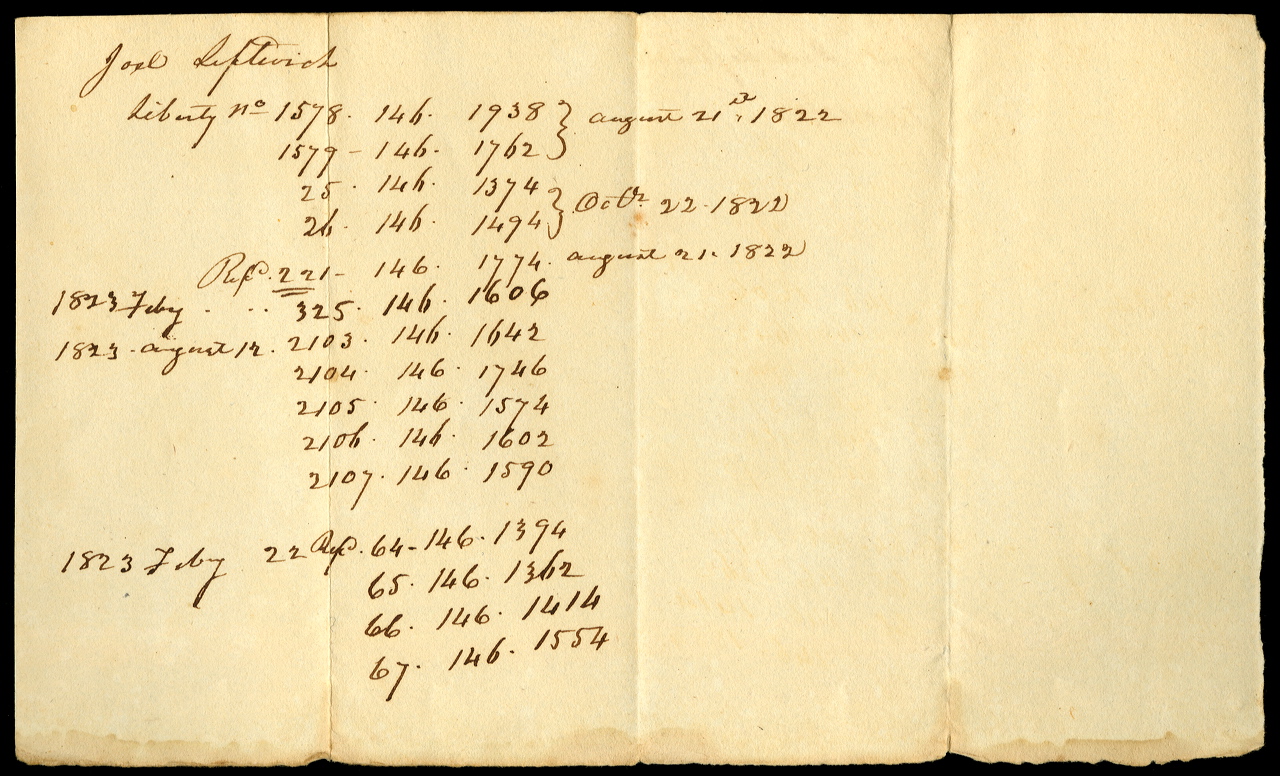 Joel Leftwich
Liberty no 1578. 146. 1938 } august 21st, 1822
1579 - 146. 1762
25. 146. 1374 } Octr. 22. 1822
26. 146. 1494
Refd. 221 - 146. 1774. august 21. 1822
1823 Feby . . . 325. 146. 1606
1823. august 12. 2103. 146. 1642
2104. 146. 1746
2105. 146. 1574
2106. 146. 1602
2107. 146. 1590
1823 Feby 22 Refd. 64 - 146. 1394
65. 146. 1362
66. 146. 1414
67. 146. 1554